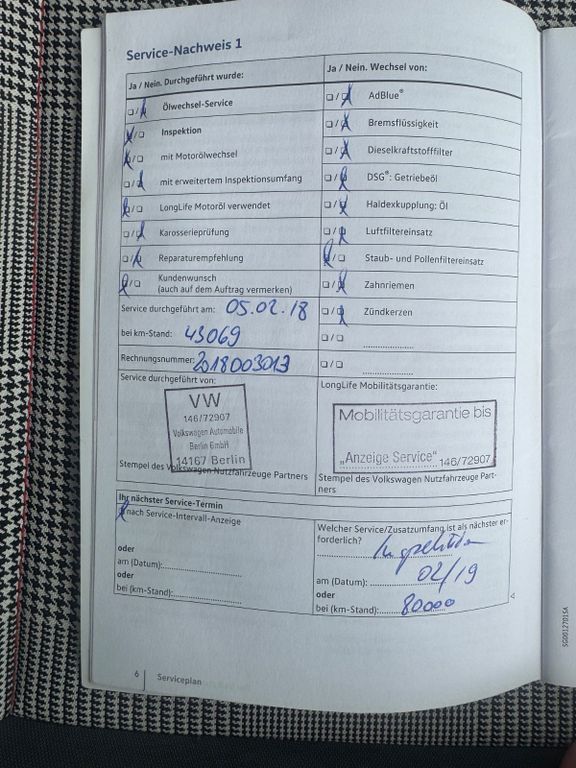 Service-Nachweis 1
Ja / Nein. Durchgeführt wurde:
Ölwechsel-Service
Inspektion
mit Motorölwechsel
mit erweitertem Inspektionsumfang
LongLife Motoröl verwendet
Karosserieprüfung
Reparaturempfehlung
Kundenwunsch
(auch auf dem Auftrag vermerken)
Service durchgeführt am: 05.02.18
bei km-Stand: 43069
Rechnungsnummer: 2018003013
Service durchgeführt von:
VW
146/72907
Volkswagen Automobile
Berlin GmbH
14167 Berlin
Stempel des Volkswagen Nutzfahrzeuge Partners
Ja / Nein. Wechsel von:
AdBlue®
Bremsflüssigkeit
Dieselkraftstofffilter
DSG®: Getriebeöl
Haldexkupplung: Öl
Luftfiltereinsatz
Staub- und Pollenfiltereinsatz
Zahnriemen
Zündkerzen
LongLife Mobilitätsgarantie:
Mobilitätsgarantie bis
„Anzeige Service" 146/72907
Stempel des Volkswagen Nutzfahrzeuge Part-
ners
Ihr nächster Service-Termin
nach Service-Intervall-Anzeige
oder
am (Datum):
oder
bei (km-Stand):
Welcher Service/Zusatzumfang ist als nächster er-
forderlich? Inspektion
am (Datum): 02/19
oder
bei (km-Stand): 80000
6 Serviceplan
5G0012701SA